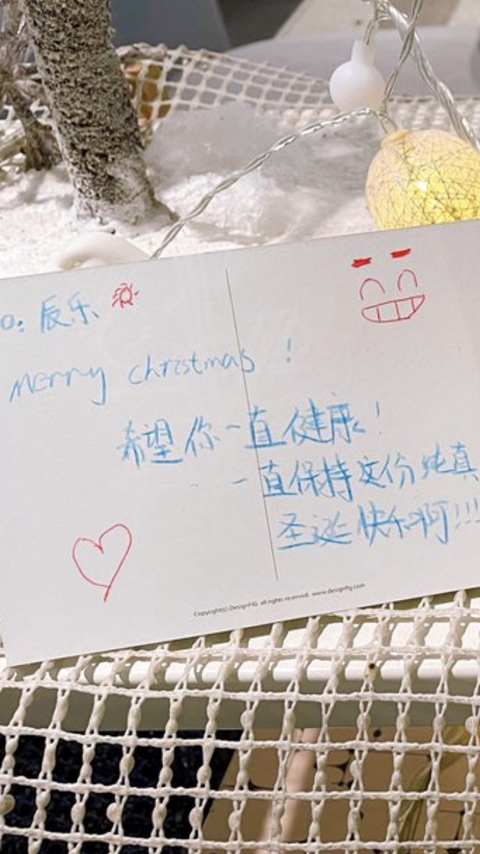 o: 辰乐
merry christmas !
希望你一直健康!
一直保持这份纯真
圣诞快乐啊!!!
Copyright(c) DesignFIG. all rights reserved. www.designfig.com